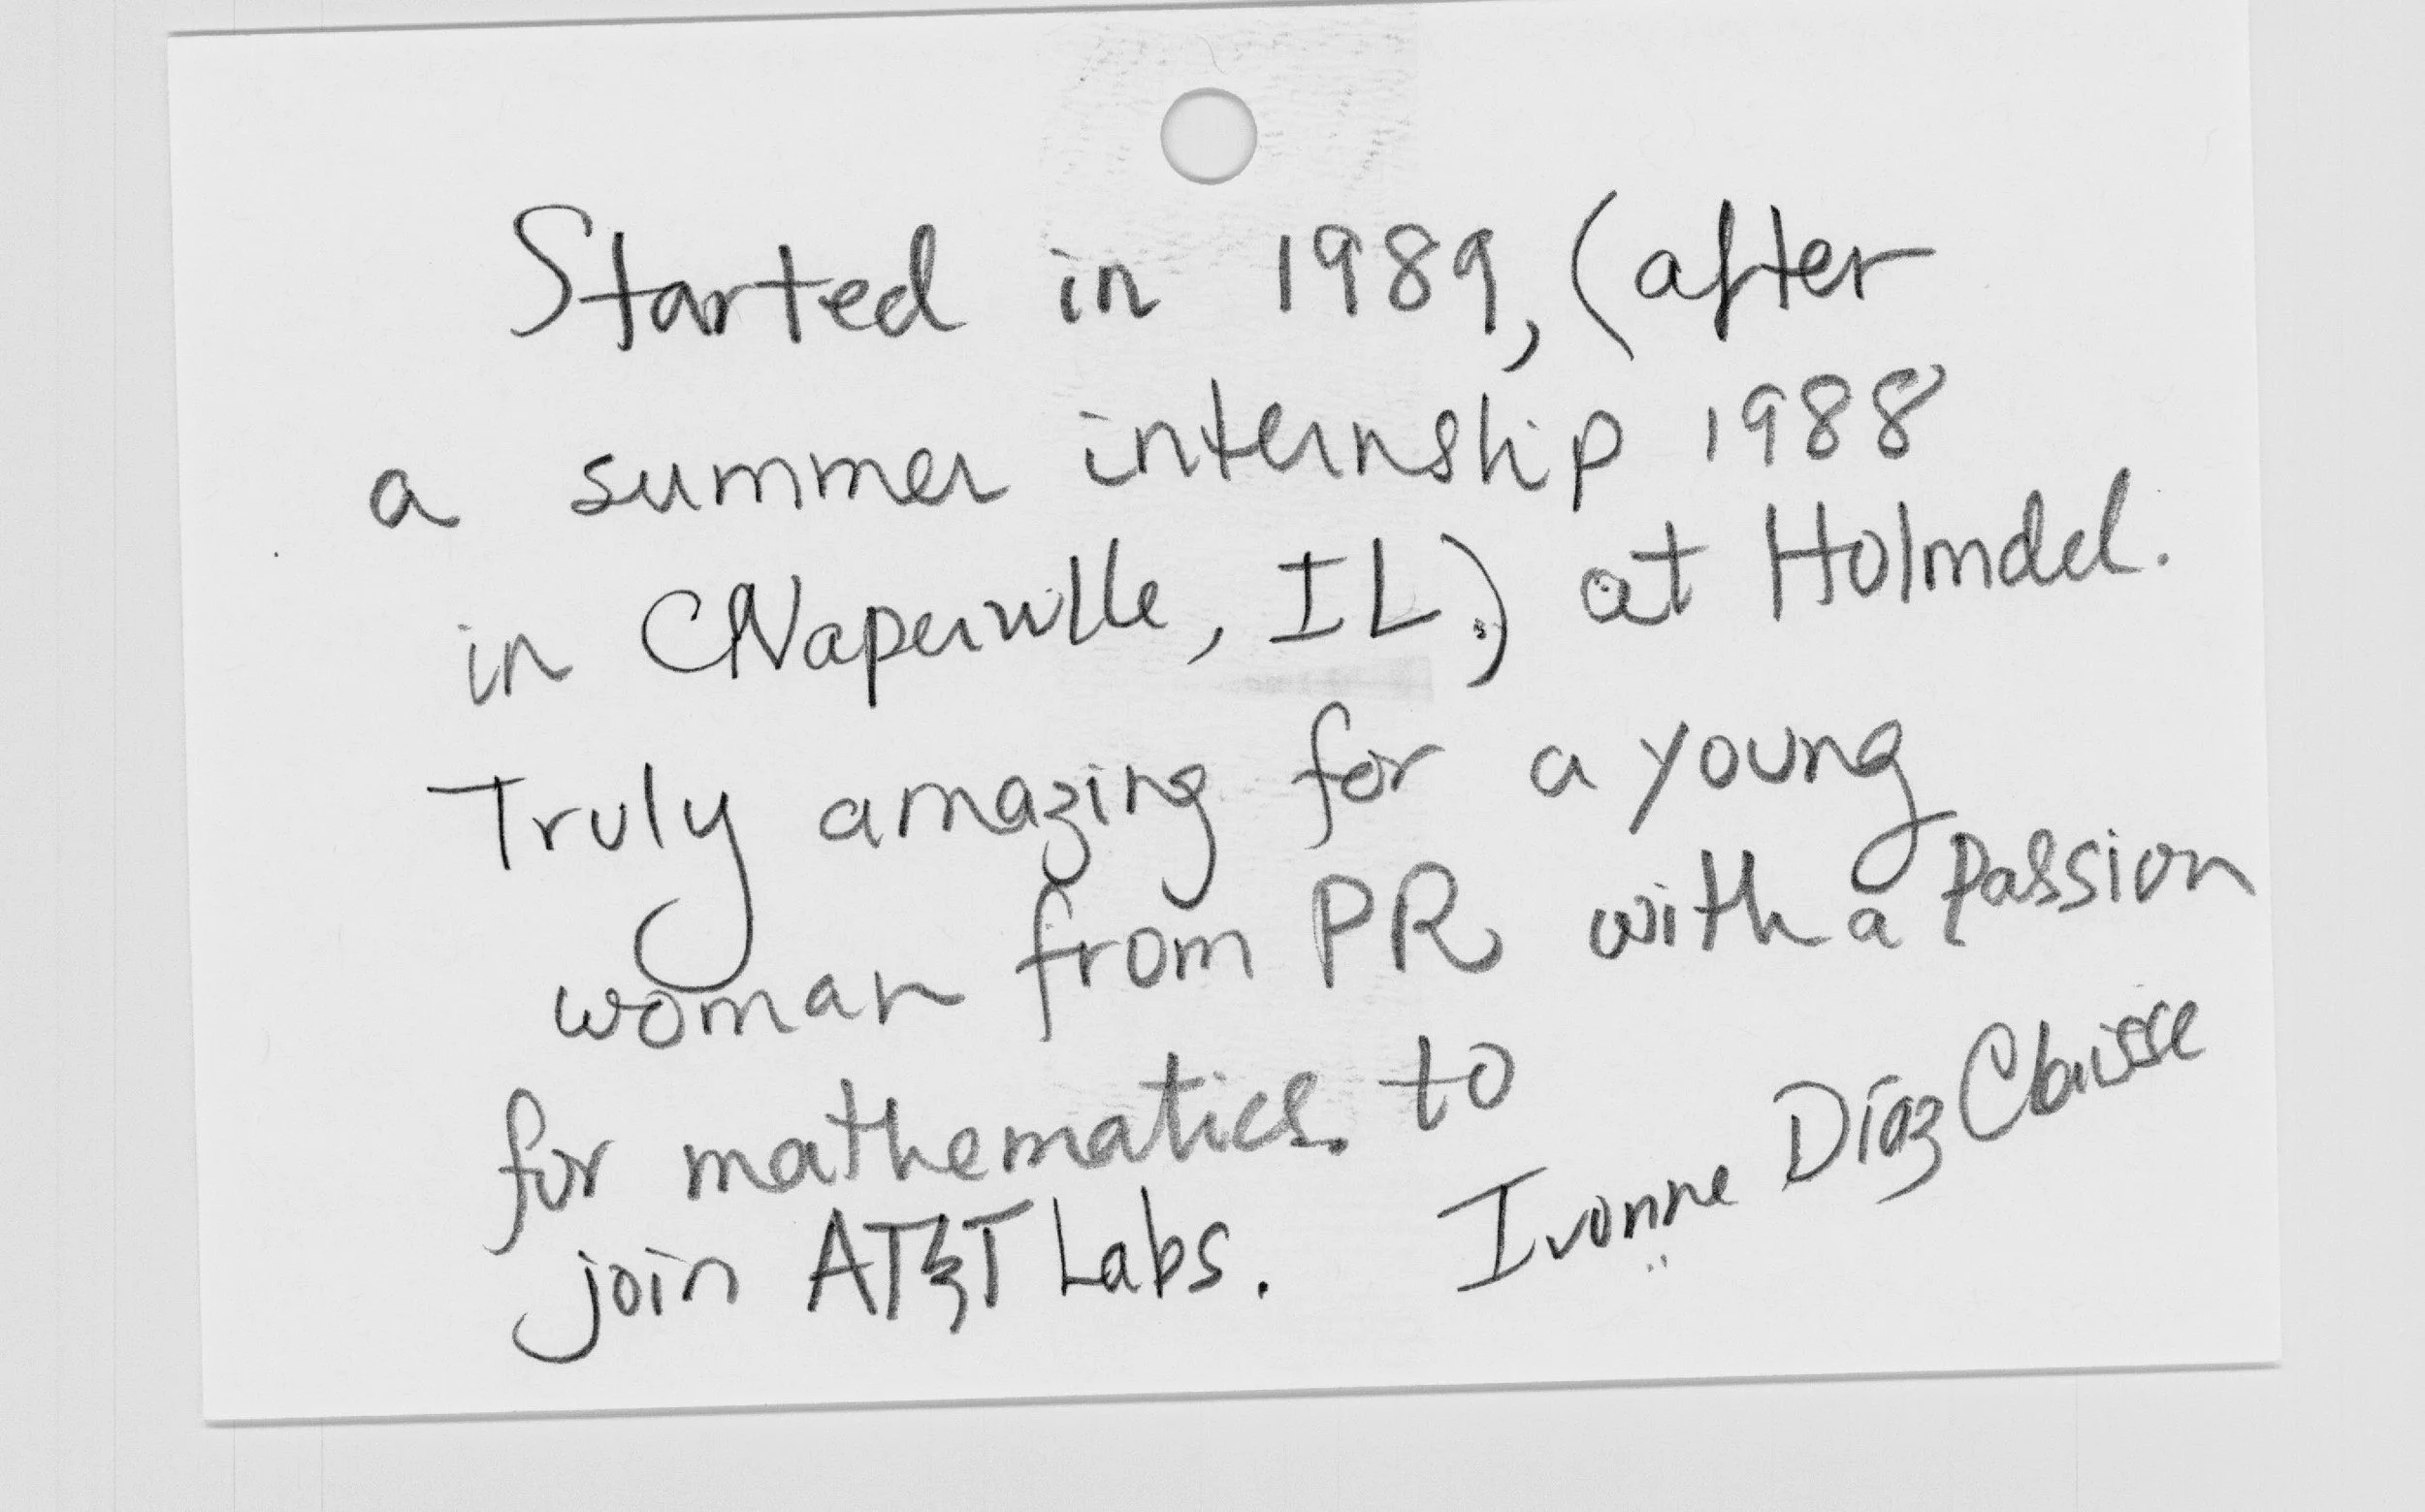 Started in 1989, (after
a summer internship 1988
in Naperville, IL.) at Holmdel.
Truly amazing for a young
woman from PR with a passion
for mathematics to
join AT&T Labs.
Ivonne Díaz Claisse